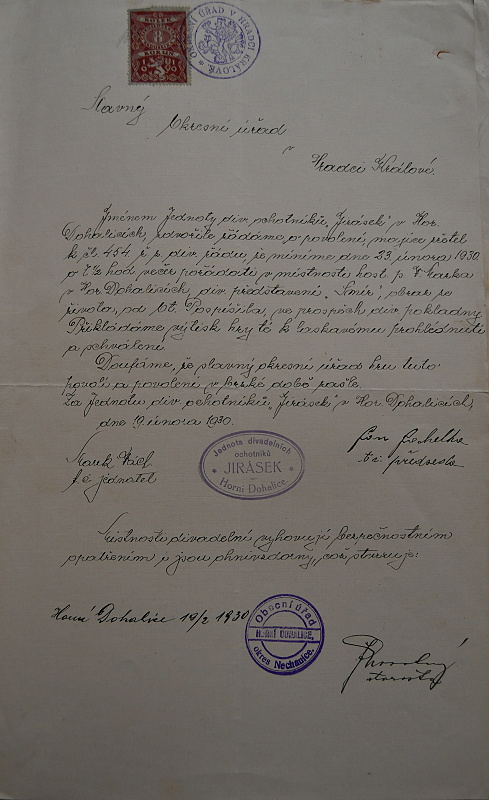 KOLEK
8
KORUN
OBECNÍ ÚŘAD V HRADCI KRÁLOVÉ
Slavný
Okresní úřad
v
Hradci Králové.
Jménem Jednoty div. ochotníků „Jirásek" v Hor.
Dohalicích, zdvořile žádáme, o povolení, majíce zřetel
k čl. 454. ř. z. div. řádu, že míníme dne 23. února 1930.
o 7½ hod. večer pořádati v místnosti host. p. Marka
v Hor. Dohalicích, div. představení „Smír", obraz ze
života, od Ot. Pospíšila, ve prospěch div. pokladny.
Překládáme výtisk hry té k laskavému prohlédnutí
a schválení.
Doufáme, že slavný okresní úřad hru tuto
povolí a povolení v brzké době zašle.
Za Jednotu div. ochotníků „Jirásek" v Hor. Dohalicích,
dne 19. února 1930.
Marek Václ.
t. č. jednatel
Jednota divadelních
ochotníků
JIRÁSEK
Horní Dohalice
Jan
t. č. předseda
Místnosti divadelní vyhovují bezpečnostním
opatřením i jsou ohnivzdorny, což stvrzuje:
Horní Dohalice 19/2 1930
Obecní úřad
HORNÍ DOHALICE,
okres Nechanice.
starosta